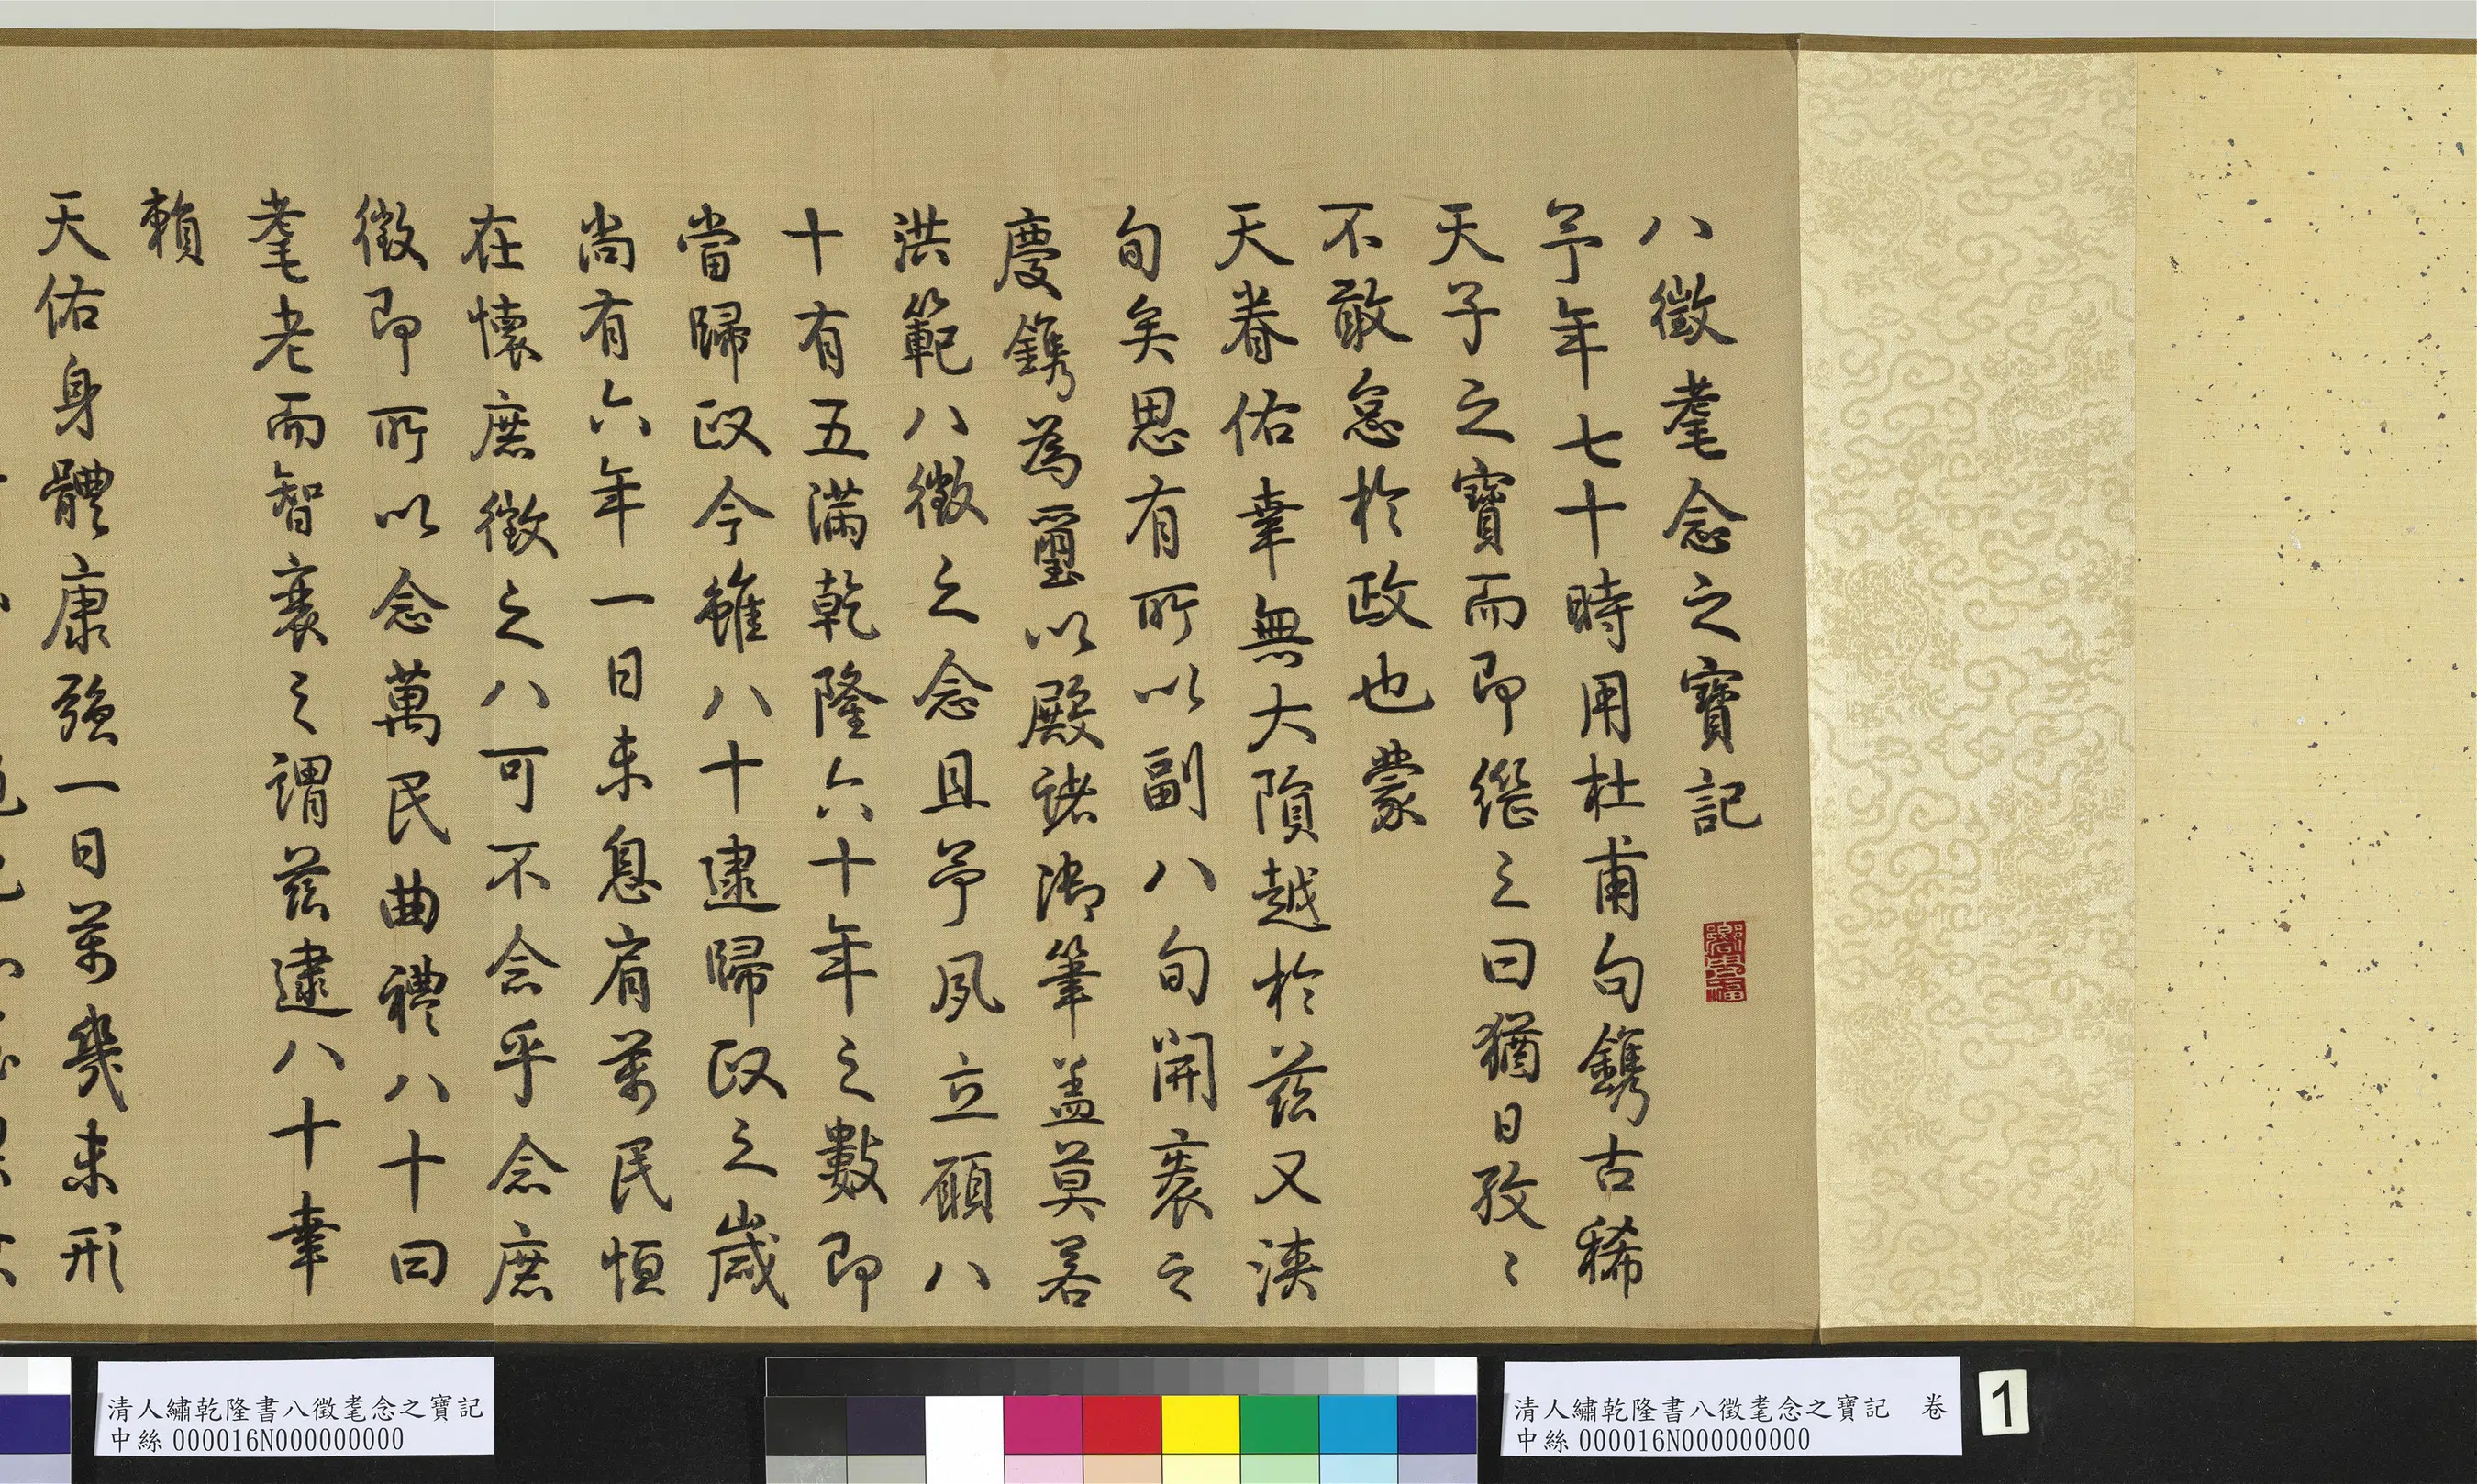 八徵耄念之寶記
予年七十時用杜甫句鐫古稀
天子之寶而即繼之曰猶日孜〻
不敢怠於政也蒙
天眷佑幸無大隕越於茲又浹
旬矣思有所以副八旬開袠之
慶鐫為璽以殿諸御筆盖莫若
洪範八徵之念且予夙立願八
十有五滿乾隆六十年之數即
當歸政今雖八十逮歸政之歲
尚有六年一日未息肩萬民恒
在懷庶徵之八可不念乎念庶
徵即所以念萬民曲禮八十曰
耄老而智衰之謂茲逮八十幸
賴
天佑身體康强一日萬幾未形
清人繡乾隆書八徵耄念之寶記 卷
中絲 000016N000000000
1
清人繡乾隆書八徵耄念之寶記
中絲 000016N000000000